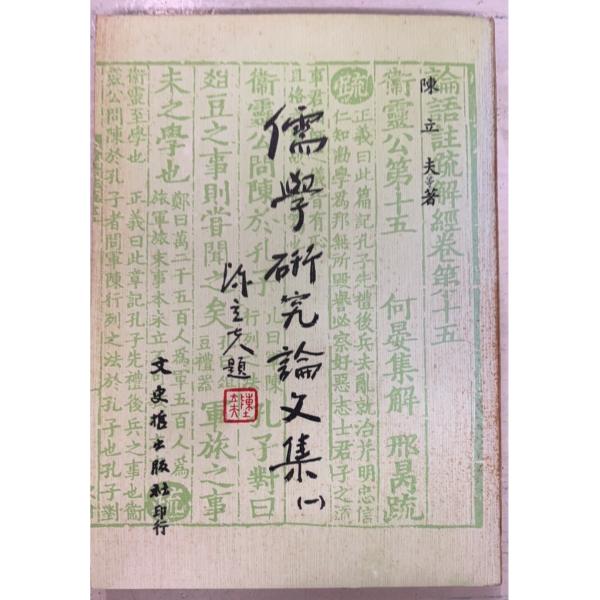 陳立夫等著
儒學研究論文集(一)
陳立夫題
陳立夫
文史哲出版社印行
論語註疏解經卷第十五
衞靈公第十五 何晏集解 邢昺疏
疏 正義曰此篇記孔子先禮後兵去亂就治并明忠信
仁知勸學爲邦無所毀譽必察好惡志士君子之道
衞靈公問陳於孔子 孔子對曰
俎豆之事則嘗聞之矣 軍旅之事
未之學也 鄭曰萬二千五百人爲軍五百人爲
旅軍旅末事本未立 疏
衞靈至學也 正義曰此章記孔子先禮後兵之事也衞
靈公問陳於孔子者問軍陳行列之法於孔子也孔子對